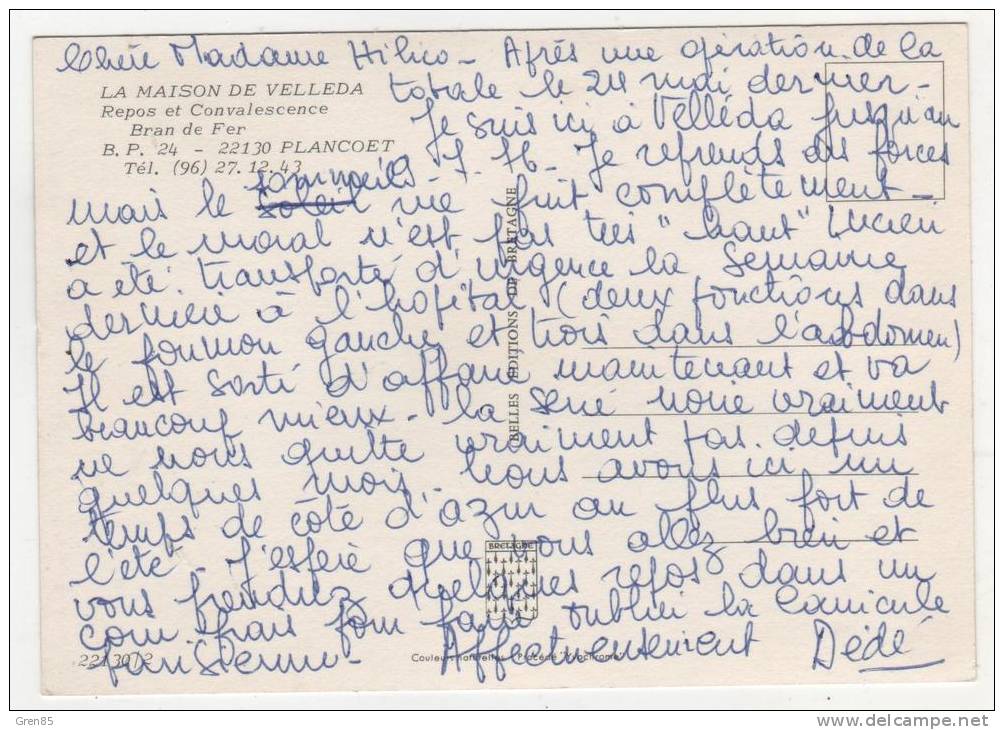 Chère Madame Hilico - Après une opération de la
totale le 24 mai dernier -
LA MAISON DE VELLEDA
Repos et Convalescence
Bran de Fer
B. P. 24 - 22130 PLANCOET
Tél. (96) 27.12.43
Je suis ici à Velléda jusqu'au
Je reprends des forces
mais le sommeil me fuit complètement -
et le moral n'est pas très "haut" Lucien
a été transporté d'urgence la semaine
dernière à l'hopital (deux ponctions dans
le poumon gauche et trois dans l'abdomen)
Il est sorti d'affaire maintenant et va
beaucoup mieux - la série noire vraiment
ne nous quitte vraiment pas depuis
quelques mois. Nous avons ici un
temps de côte d'azur au plus fort de
l'été - J'espère que vous allez bien et
vous prendrez quelques repos dans un
coin frais pour faire oublier la canicule
parisienne - Affectueusement Dédé
BELLES EDITIONS DE BRETAGNE
BRETAGNE
22130/2
Couleurs naturelles - Procédé "Yvochrome"
Gren85
www.delcampe.net